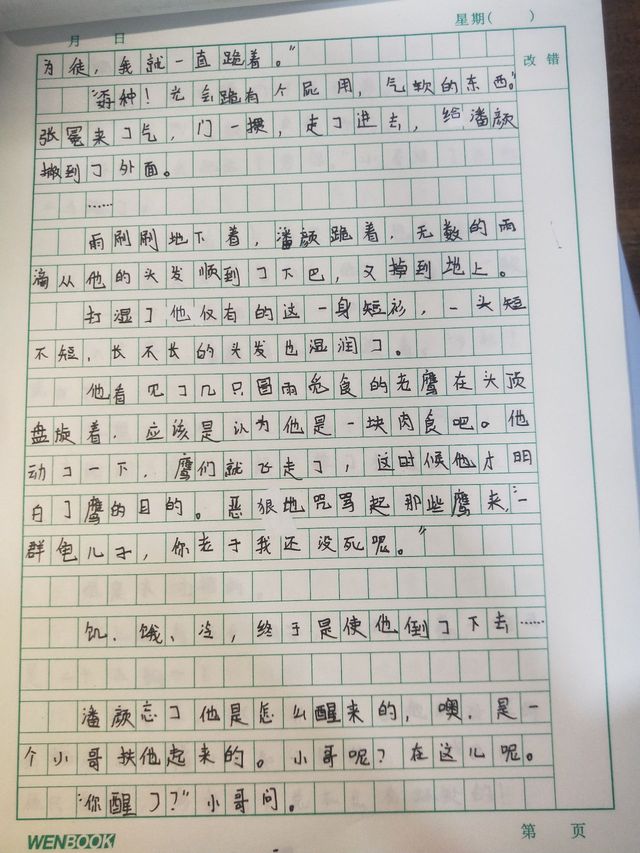 月 日 星期( )
改 错
为徒，我就一直跪着。"
"孬种！光会跪有个屁用，气软的东西。"
张冕来了气，门一摜，走了进去，给潘颜
撇到了外面。
……
雨刷刷地下着，潘颜跪着，无数的雨
滴从他的头发顺到了下巴，又掉到地上。
打湿了他仅有的这一身短衫，一头短
不短，长不长的头发也湿润了。
他看见了几只冒雨觅食的老鹰在头顶
盘旋着，应该是认为他是一块肉食吧。他
动了一下，鹰们就飞走了，这时候他才明
白了鹰的目的。恶狠地咒骂起那些鹰来，"一
群龟儿子，你老子我还没死呢。"
饥、饿、冷，终于是使他倒了下去……
潘颜忘了他是怎么醒来的，噢，是一
个小哥扶他起来的。小哥呢？在这儿呢。
"你醒了？"小哥问。
WENBOOK
第 页